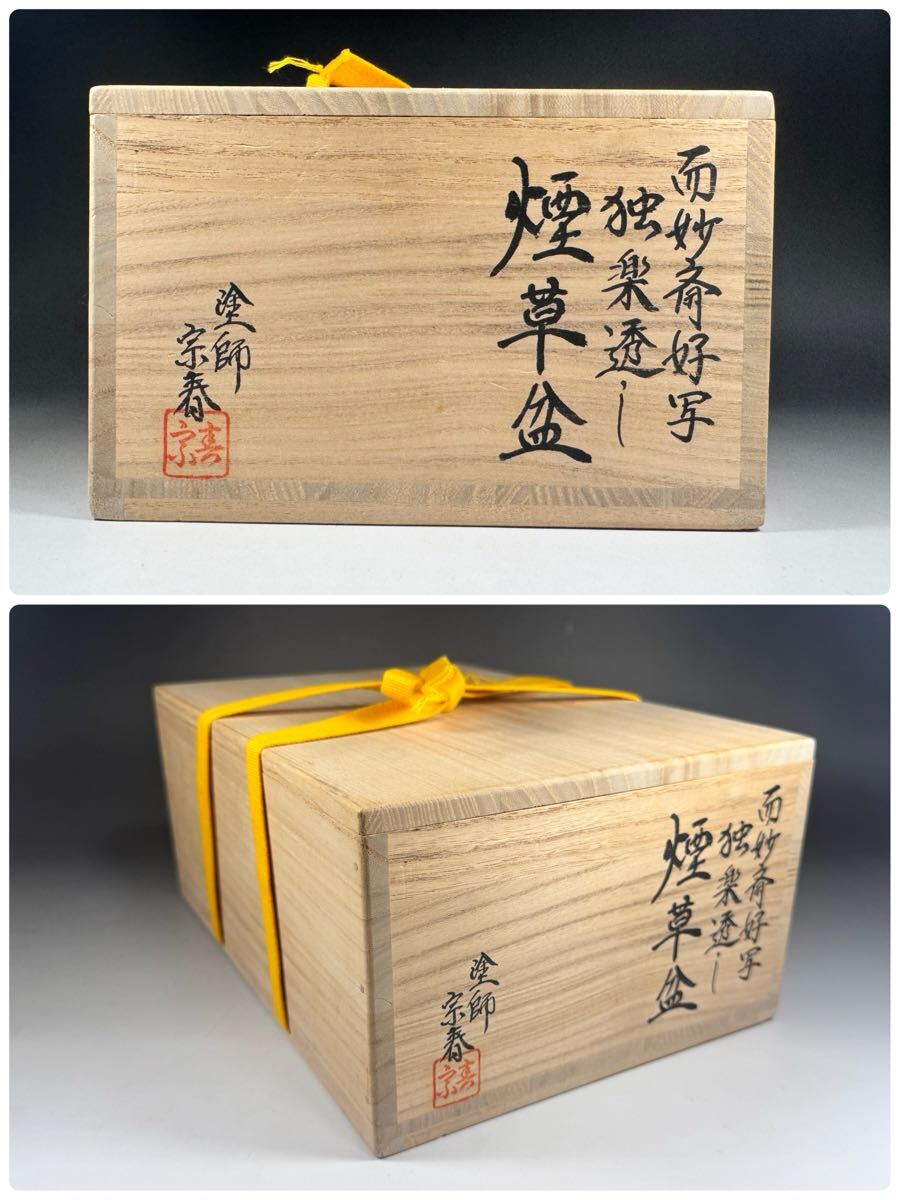 而妙斎好写
独楽透し
煙草盆
塗師
宗春
宗春
而妙斎好写
独楽透し
煙草盆
塗師
宗春
宗春